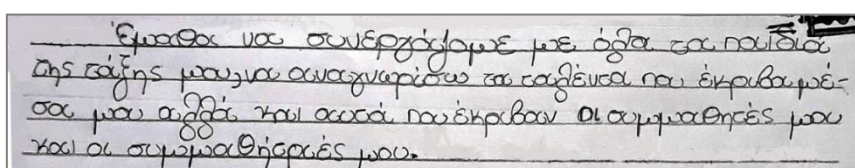 Έμαθα να συνεργάζομε με όλα τα παιδιά
της τάξης μου, να αναγνωρίσω τα ταλέντα που έκρυβα μέ-
σα μου αλλά και αυτά που έκρυβαν οι συμμαθητές μου
και οι συμμαθήτριές μου.